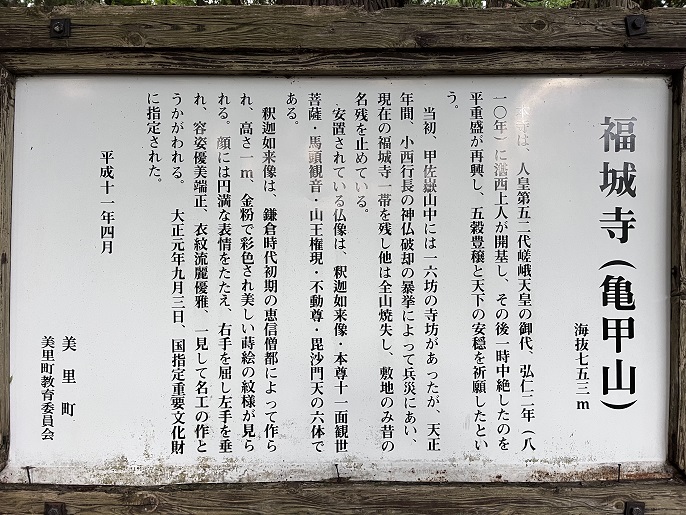 福城寺（亀甲山）
海抜七五三m
寺は、人皇第五二代嵯峨天皇の御代、弘仁二年（八
一〇年）に湛西上人が開基し、その後一時中絶したのを
平重盛が再興し、五穀豊穣と天下の安穏を祈願したとい
う。
当初、甲佐嶽山中には一六坊の寺坊があったが、天正
年間、小西行長の神仏破却の暴挙によって兵災にあい、
現在の福城寺一帯を残し他は全山焼失し、敷地のみ昔の
名残を止めている。
安置されている仏像は、釈迦如来像・本尊十一面観世
菩薩・馬頭観音・山王権現・不動尊・毘沙門天の六体で
ある。
釈迦如来像は、鎌倉時代初期の恵信僧都によって作ら
れ、高さ一m、金粉で彩色され美しい蒔絵の紋様が見ら
れる。顔には円満な表情をたたえ、右手を屈し左手を垂
れ、容姿優美端正、衣紋流麗優雅、一見して名工の作と
うかがわれる。　大正元年九月三日、国指定重要文化財
に指定された。
平成十一年四月
美里町
美里町教育委員会